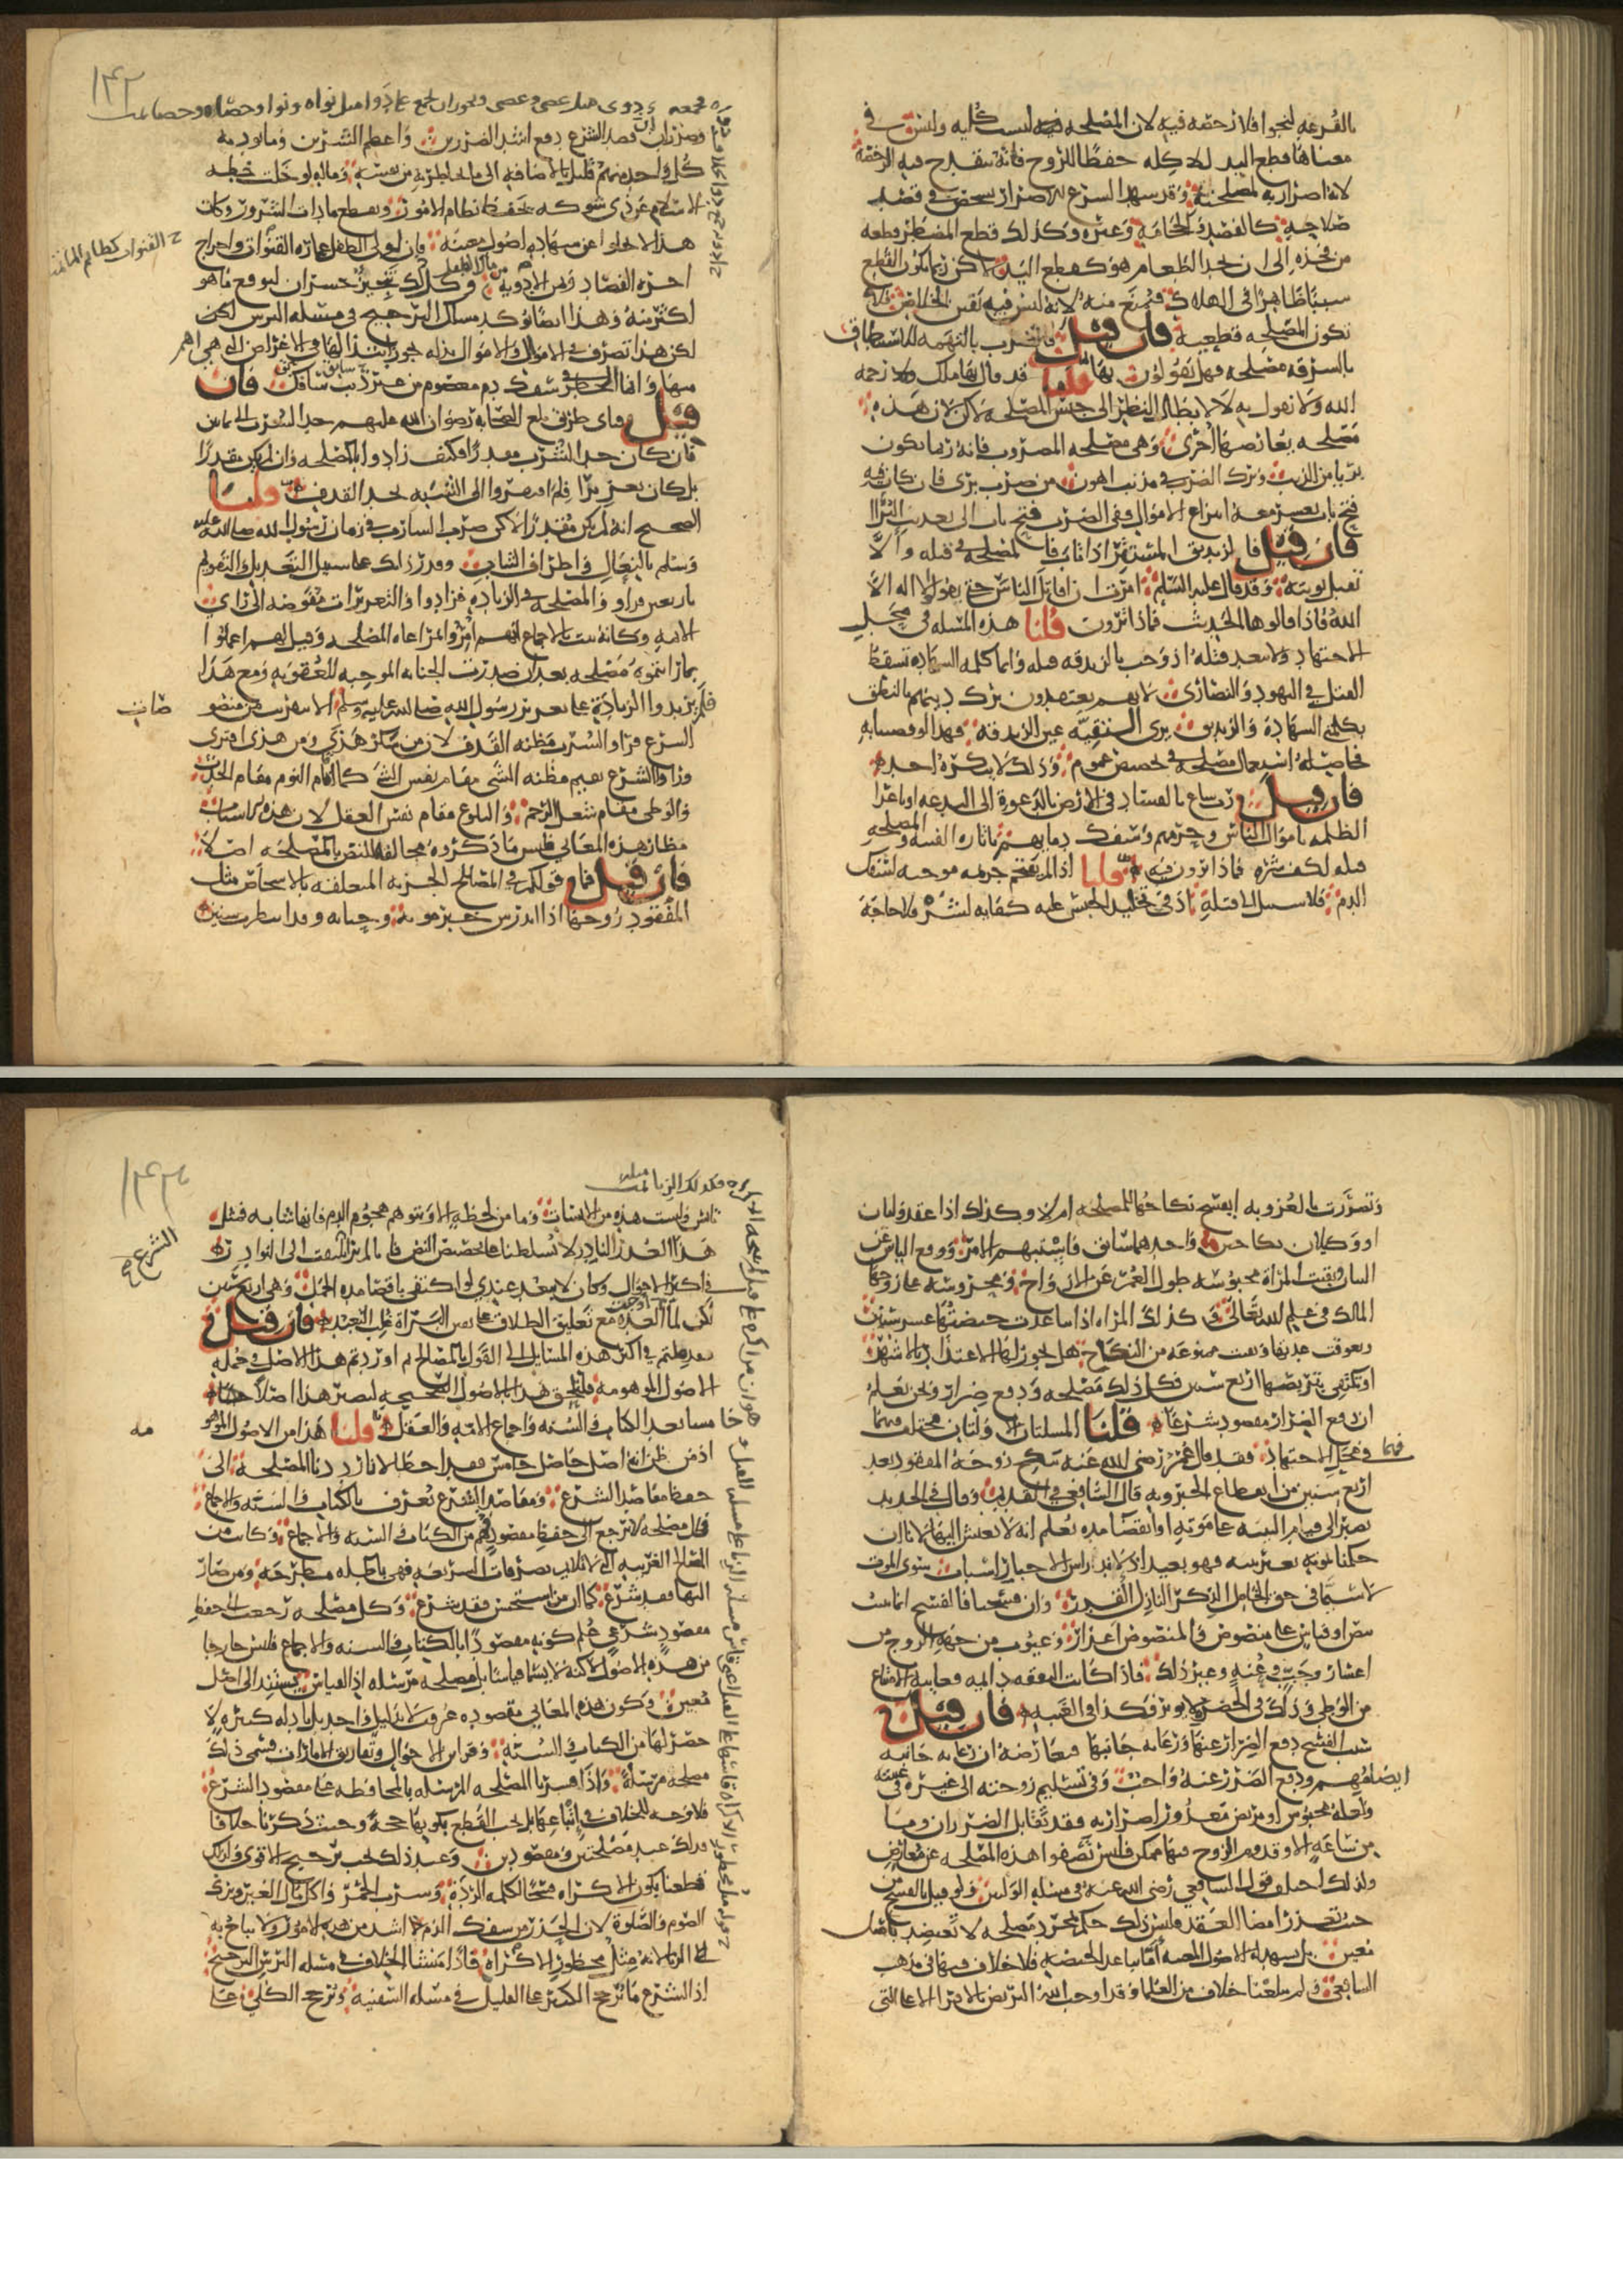 بالقرعه لينجوا فلا رخصه فيه لان المصلحه فيه ليست كليه وليس في
معناها قطع اليد للاكله حفظا للروح فانه ينقدح فيه الرخصة
لانه اضرار به لمصلحته وقد شهد الشرع للاضرار بشخص في قصد
صلاحه كالفصد والحجامة وغيره وكذلك قطع المضطر قطعه
من فخذه الى ان يجد الطعام هو كقطع اليد لكن ربما يكون القطع
سببا ظاهرا في الهلاك فيمنع منه لانه ليس فيه يقين الخلاص فلا
تكون المصلحه قطعية فان قيل فالضرب بالتهمه للاستنطاق
بالسرقه مصلحه فهل تقولون بها قلنا قد قال بها ملك رحمه
الله ولا نقول به لا لابطال النظر الى جنس المصلحه لكن لان هذه
مصلحه تعارضها اخرى وهي مصلحه المضروب فانه ربما يكون
بريا من الذنب وترك الضرب في مذنب اهون من ضرب بري فان كان فيه
فتح باب يعسر معه انتزاع الاموال ففي الضرب فتح باب الى تعذيب البرا
فان قيل فالزنديق المستتر اذا تاب فالمصلحه في قتله والا
تقبل توبته وقد قال عليه السلم امرت ان اقاتل الناس حتى يقولوا لا اله الا
الله فاذا قالوها الحديث فماذا ترون قلنا هذه المسله في محل
الاجتهاد ولا يبعد قتله اذ وجب بالزندقه قتله وانما كلمه الشهاده تسقط
القتل في اليهود والنصارى لانهم يعتقدون ترك دينهم بالنطق
بكلمتي الشهادة والزنديق يرى التقيه عين الزندقه فهذا لو قضينا به
فحاصله استعمال مصلحه في تخصيص عموم وذلك لا ينكره احد
فان قيل رب ساع بالفساد في الارض بالدعوة الى البدعه او باغرا
الظلمه باموال الناس وحرمهم وسفك دمايهم باثاره الفتنه والمصلحه
قتله لكف شره فماذا ترون فيه قلنا اذا لم يقتحم جريمه موجبه لسفك
الدم فلا سبيل الى قتله اذ في تخليد الحبس عليه كفايه لشره فلا حاجة
۱۴۲
وعرفنا ان قصد الشرع دفع اشد الضررين واعظم الشرين وما يوديه
كل واحد منهم قليل بالاضافه الى ما يخاطر به من نفسه وماله لو خلت خطه
الاسلام عن ذي شوكه يحفظ نظام الامور ويقطع مادات الشرور وكان
هذا لا يخلوا عن شهاده اصول معينه فان لولي الطفل عماره القنوات واخراج
اجره الفصاد وثمن الادويه وكل ذلك تنجيز خسران لتوقع ما هو
اكثر منه وهذا ايضا يوكد مسلك الترجيح في مسئله الترس لكن
لكن هذا تصرف في الاموال والاموال مبذله يجوز ابتذالها في الاغراض التي هي اهم
منها وانما الخطر في سفك دم معصوم من غير ذنب سافك فان
قيل فباي طريق بلغ الصحابه رضوان الله عليهم حد الشرب الى ثمانين
فان كان حد الشرب مقدرا فكيف زادوا بالمصلحه وان لم يكن مقدرا
بل كان تعزيرا فلم افتقروا الى الشبه بحد القذف قلنا
الصحيح انه لم يكن مقدرا لكن ضرب الشارب في زمان رسول الله صلى الله عليه
وسلم بالنعال واطراف الثياب وقدر ذلك على سبيل التعديل والتقويم
باربعين فراو المصلحه في الزياده فزادوا والتعزيرات مفوضه الى راي
الامه وكانه ثبت بالاجماع انهم امروا بمراعاه المصلحه وقيل لهم اعملوا
بما رايتموه مصلحه بعد ان صدرت الجنايه الموجبه للعقوبه ومع هذا
فلم يزيدوا الزيادة على تعزير رسول الله صلى الله عليه وسلم الا بتقريب من منصو
صات
الشرع فراوا الشرب مظنه القذف لان من سكر هذى ومن هذى افترى
وراوا الشرع يقيم مظنه الشي مقام نفس الشي كما اقام النوم مقام الحدث
والوطي مقام شغل الرحم والبلوغ مقام نفس العقل لان هذه الاسباب
مظان هذه المعاني فليس ما ذكروه مخالفه للنص بالمصلحه اصلا
فان قيل فما قولكم في المصالح الجزيه المتعلقه بالاشخاص مثل
المفقود زوجها اذا اندرس خبر موته وحياته وقد انتظرت سنين
وتضررت بالعزوبه ايفسخ نكاحها للمصلحه ام لا وكذلك اذا عقد وليان
او وكيلان نكاحين واحدهما سابق فاستبهم الامر ووقع الياس عن
البيان بقيت المراة محبوسه طول العمر عن الازواج ومحرومه على زوجها
المالك في علم الله تعالى وكذلك المراه اذا تباعدت حيضتها عشر سنين
وتعوقت عدتها وبقيت ممنوعه من النكاح هل يجوز لها الاعتداد بالاشهر
او تكتفي بتربصها اربع سنين فكل ذلك مصلحه ودفع ضرار ونحن نعلم
ان دفع الضرار مقصود شرعا قلنا المسلتان الاوليان مختلف فيهما
في محل الاجتهاد فقد قال عمر رضي الله عنه تنكح زوجة المفقود بعد
اربع سنين من انقطاع الخبر وبه قال الشافعي في القديم وقال في الجديد
تصبر الى قيام البينه على موته او انقضا مده نعلم انه لا يعيش اليها لانا ان
حكمنا بموته بغير بينه فهو بعيد اذ لاندراس الاخبار اسباب سوى الموت
لا سيما في حق الخامل الذكر النازل القدر وان فسخنا فالفسخ انما ثبت
بنص او قياس على منصوص والمنصوص اعذار وعيوب من جهة الزوج من
اعسار وجب وعنه وغير ذلك فاذا كانت النفقه دايمه فغايته الامتناع
من الوطي وذلك في الحضر لا يوثر فكذا في الغيبه فان قيل
سبب الفسخ دفع الضرار عنها ورعايه جانبها فيعارضه ان رعايه جانبه
ايضا مهم ودفع الضرر عنه واجب وفي تسليم زوجته الى غيره في غيبته
ولعله محبوس او مريض معذور اضرار به فقد تقابل الضرران وما
من ساعه الا وقدوم الزوج فيها ممكن فليس تصفوا هذه المصلحه عن معارض
ولذلك اختلف قول الشافعي رضي الله عنه في مسله الوليين ولو قيل بالفسخ من
حيث تعذر امضا العقد فليس ذلك حكم بمجرد مصلحه لا تعتضد باصل
معين بل يشهد له الاصول المعينه اما تباعد الحيضه فلا خلاف فيها في مذهب
الشافعي ولم يبلغنا خلاف من العلما وقد اوجب الله التربص بالاقرا الا على التي
۱۴۳
يئسن وليست هذه من الايسات وما من لحظة الا ويتوهم هجوم الدم فانها شابه فمثل
هذا العذر النادر لا يسلطنا على تخصيص النص فانا لم نر الشرع يلتفت الى النوادر
في اكثر الاحوال وكان لا يبعد عندي لو اكتفى باقصا مده الحمل وهي اربع سنين
لكن لما اوجبت العده مع تعليق الطلاق على يقين البراة غلب التعبد فان قيل
فقد ملتم في اكثر هذه المسايل الى القول بالمصالح ثم اوردتم هذا الاصل في جمله
الاصول الموهومه فليلحق هذا بالاصول الصحيحه ليصير هذا اصلا
خامسا بعد الكتاب والسنه واجماع الامه والعقل قلنا هذا من الاصول الموهو
مه
اذ من ظن انه اصل خامس فقد اخطا لانا رددنا المصلحة الى
حفظ مقاصد الشرع ومقاصد الشرع تعرف بالكتاب والسنه والاجماع
فكل مصلحه لا ترجع الى حفظ مقصود فهم من الكتاب والسنه والاجماع وكانت من
المصالح الغريبه التي لا تلايم تصرفات الشرع فهي باطله مطرحه ومن صار
اليها فقد شرع كما ان من استحسن فقد شرع وكل مصلحه رجعت الى حفظ
مقصود شرعي علم كونه مقصودا بالكتاب والسنه والاجماع فليس خارجا
من هذه الاصول لكنه لا يسما قياسا بل مصلحه مرسله اذ القياس يستند الى اصل
معين وكون هذه المعاني مقصوده عرفت لا بدليل واحد بل بادله كثيره لا
حصر لها من الكتاب والسنة وقراين الاحوال وتفاريق الامارات فسمي ذلك
مصلحه مرسله واذا فسرنا المصلحه المرسله بالمحافظه على مقصود الشرع
فلا وجه للخلاف في اتباعها بل يجب القطع بكونها حجه وحيث ذكرنا خلافا
فذلك عند تعارض مصلحتين ومقصودين وعند ذلك يجب ترجيح الاقوى ولذلك
قطعنا بكون الاكراه مبيحا لكلمه الردة وشرب الخمر واكل مال الغير وترك
الصوم والصلوة لان الحذر من سفك الدم اشد من هذه الامور ولا يباح به
الزنا لانه مثل محظور الاكراه فاذا منشا الخلاف في مسله الترس الترجيح
اذ الشرع ما رجح الكثير على القليل في مسله السفينة ورجح الكلي على